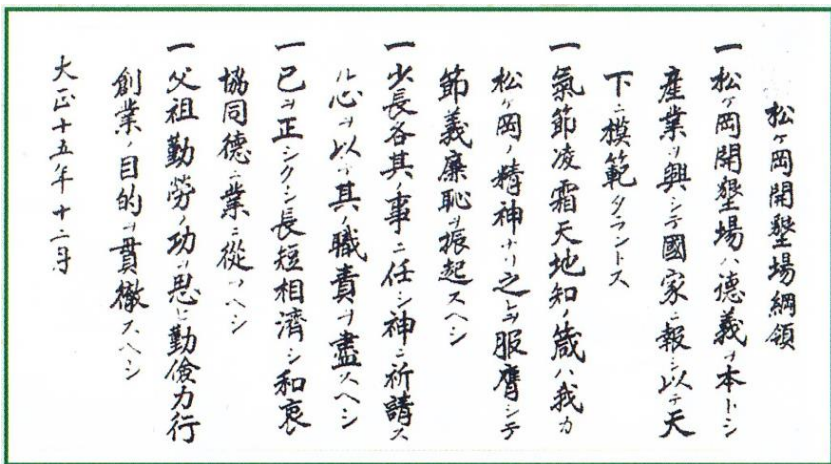 松ケ岡開墾場綱領
一松ケ岡開墾場ハ德義ヲ本トシ
產業ヲ興シテ國家ニ報シ以テ天
下ニ模範タラントス
一氣節凌霜天地知ノ箴ハ我カ
松ケ岡ノ精神ナリ之レヲ服膺シテ
節義廉恥ヲ振起スヘシ
一少長各其ノ事ニ任シ神ニ祈請ス
ル心ヲ以テ其ノ職責ヲ盡スヘシ
一己ヲ正シクシ長短相濟シ和衷
協同德ニ業ニ從フヘシ
一父祖勤勞ノ功ヲ思ヒ勤儉力行
創業ノ目的ヲ貫徹スヘシ
大正十五年十二月